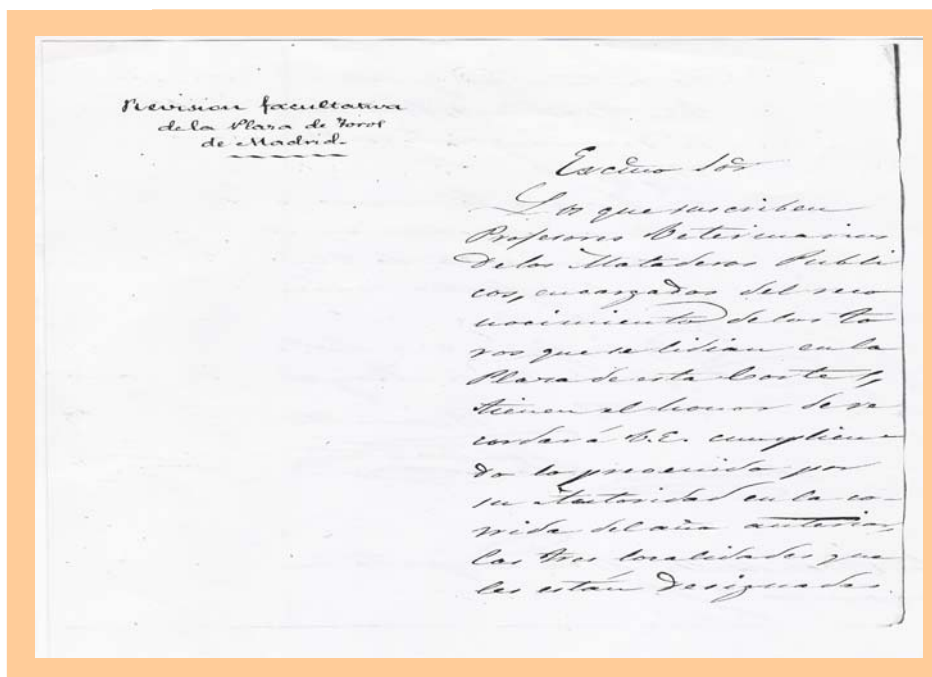 Revision facultativa
de la Plaza de Toros
de Madrid.
Excmo Sor
Los que suscriben
Profesores Veterinarios
de los Mataderos Publi
cos, encargados del reco
nocimiento de los to
ros que se lidian en la
Plaza de esta Corte,
tienen el honor de re
cordar á V.E. cumplien
do lo prevenido por
su Autoridad en la co-
rrida del año anterior,
las tres localidades que
les están designadas.